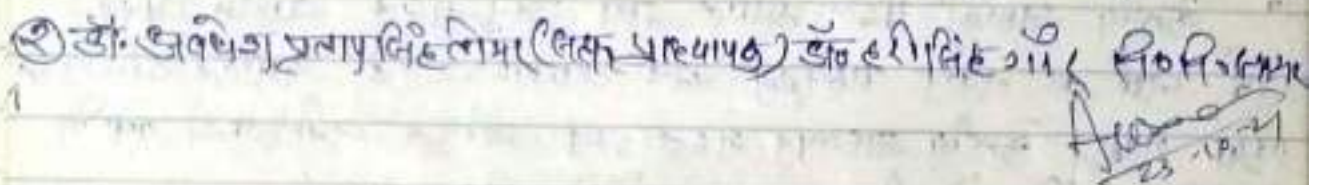 ② डॉ. अवधेश प्रताप सिंह तोमर (सहा. प्राध्यापक) डॉ० हरीसिंह गौर वि० वि० सागर
23.10.21